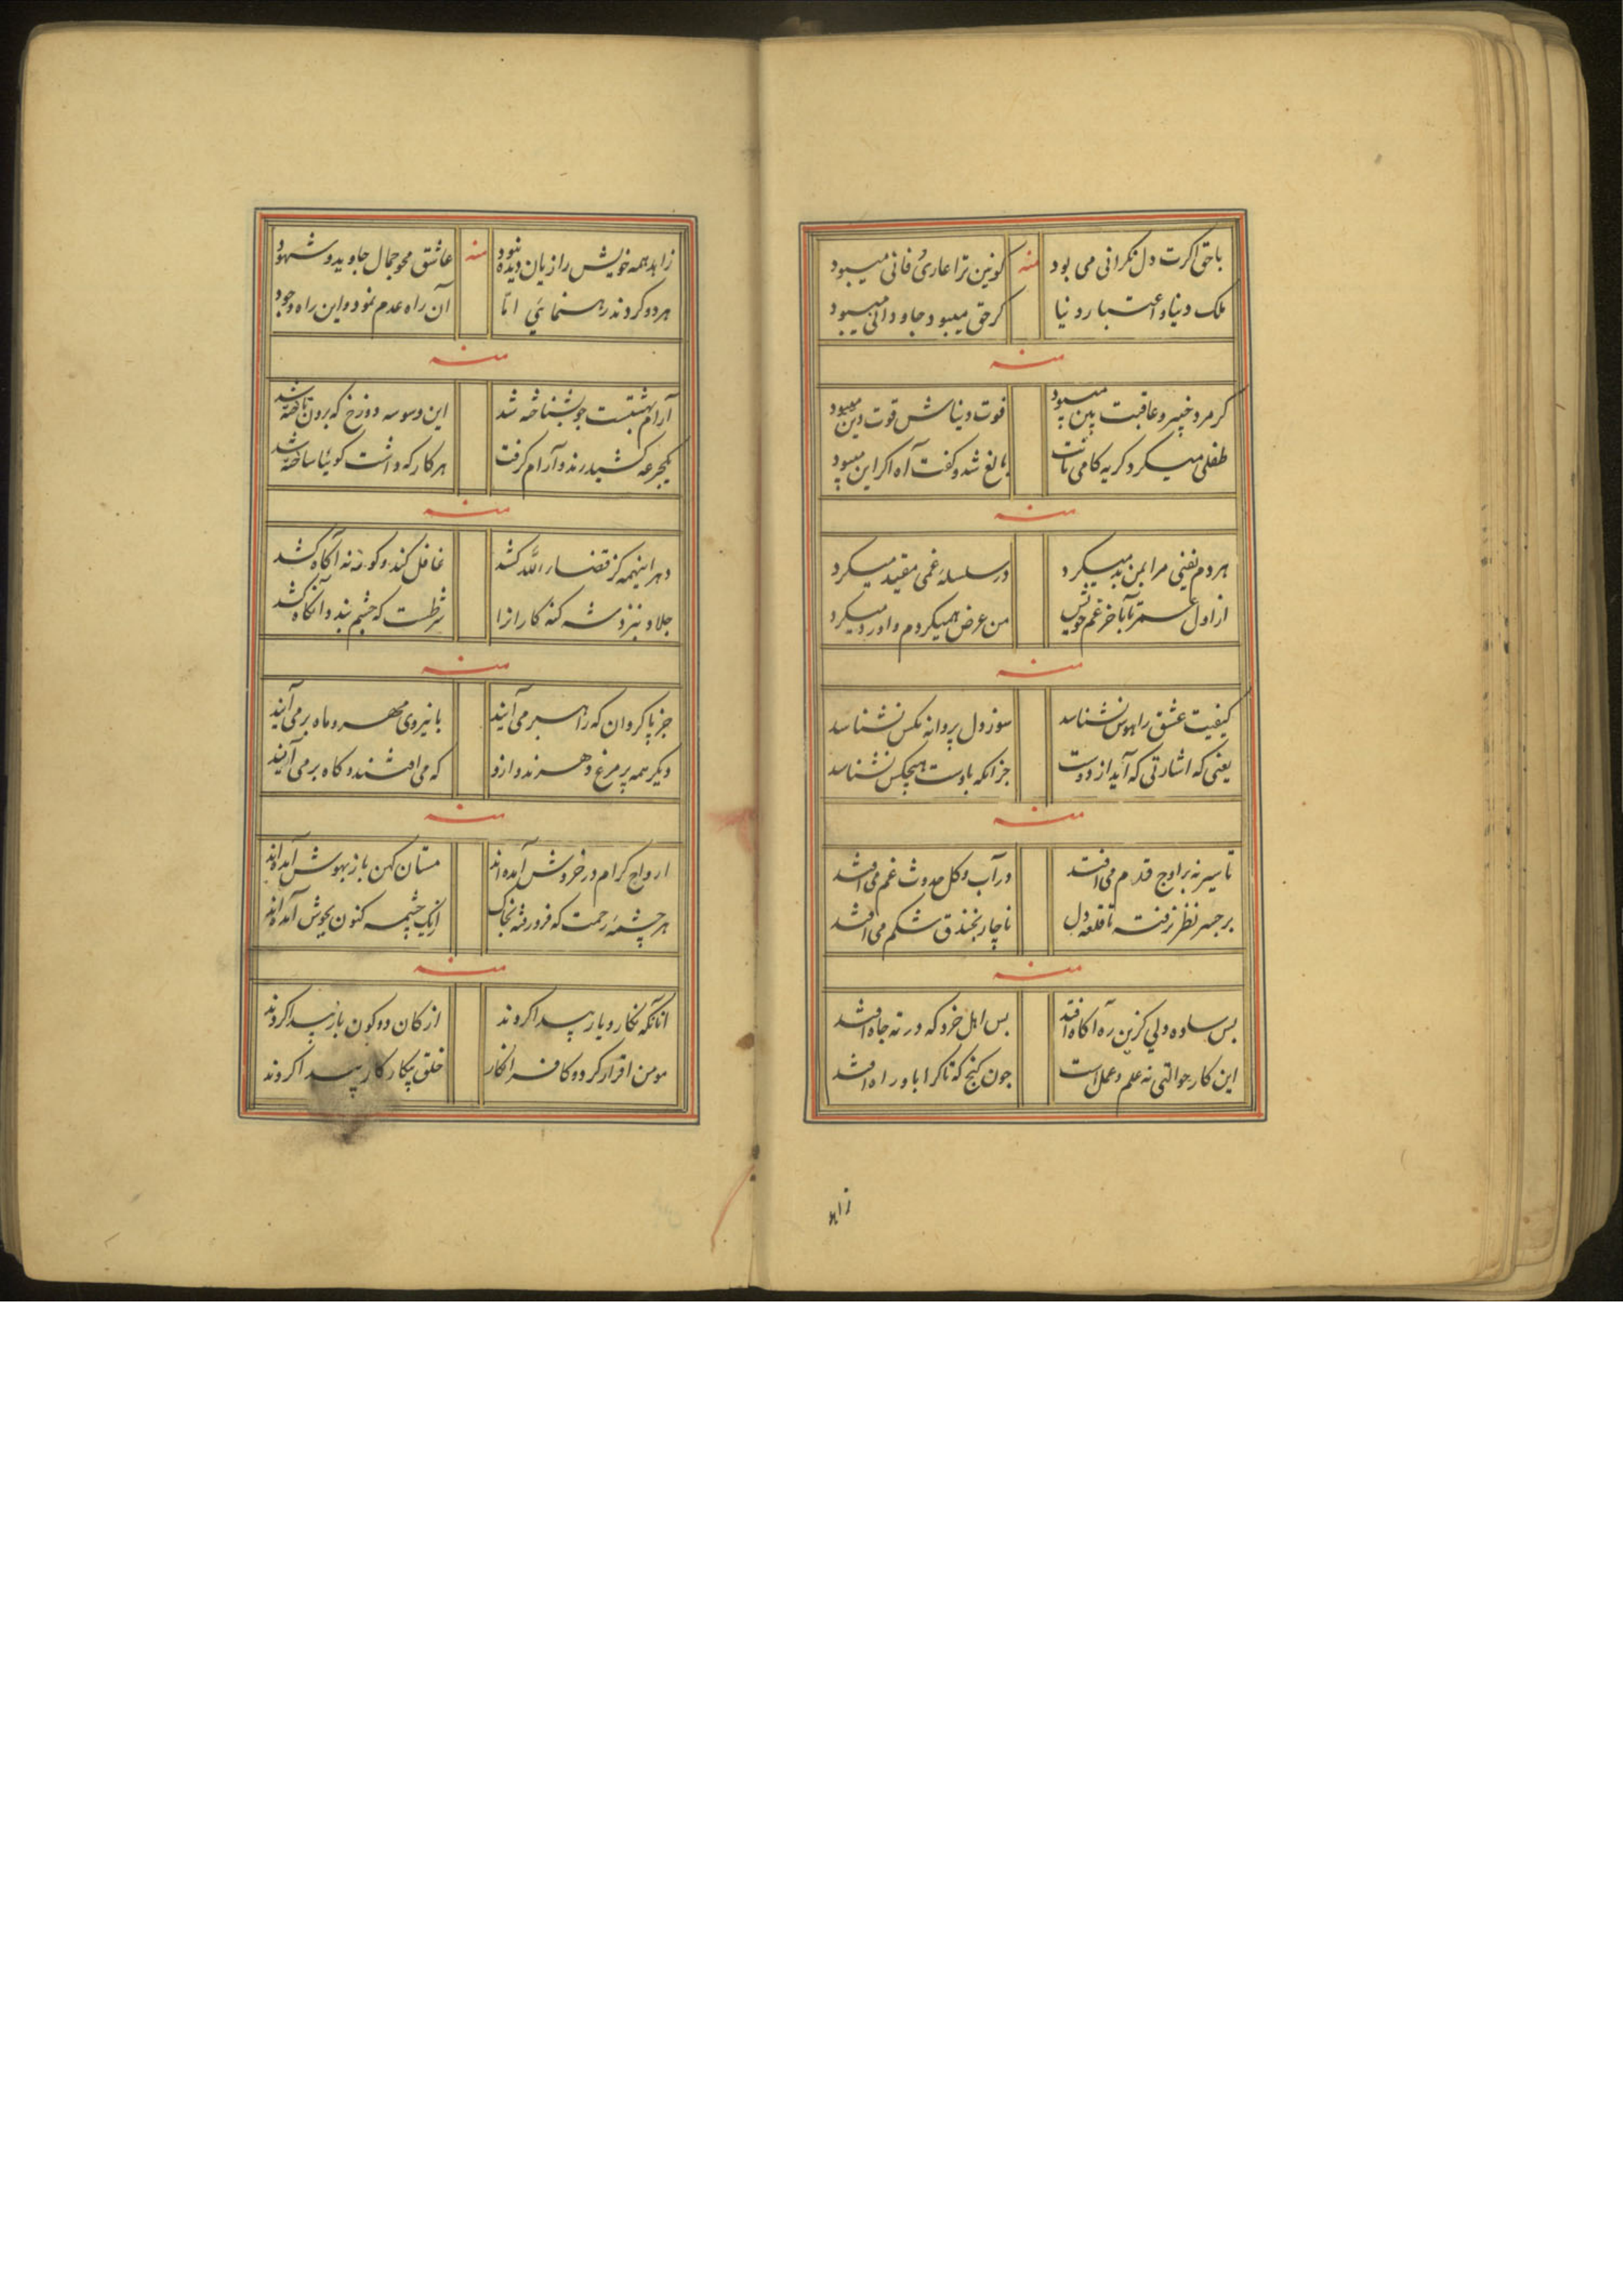 باحق اکرت دل نکرانی می بود کونین ترا عاریٔ فانی میبود
منه
ملک دنیا و اعتبار دنیا کر حق میبود جاودانی میبود
منه
کر مرد خبیر و عاقبت بین میبود فوت دنیاش قوت دین میبود
طفلی میکرد کریه کامی تا یافت بالغ شد و کفت آه اکر این میبود
منه
هر دم نفسی مرا بمن بد میکرد در سلسلهٔ غمی مقید میکرد
از اول عمر تا بآخر غم خویش من عرض همیکردم و او رد میکرد
منه
کیفیت عشق را هوس نشناسد سوز دل پروانه مکس نشناسد
یعنی که اشارتی که آید از دوست جز آنکه باوست هیچکس نشناسد
منه
تا سیر نه بر اوج قدم می افتد در آب و کل حدوث غم می افتد
بر جسر نظر نرفته تا قلعه دل ناچار بخندق شکم می افتد
منه
بس ساده ولی کزین ره آکاه افتد بس اهل خرد که در ته چاه افتد
این کار حوالتی نه علم و عمل است چون کنج که ناکرا باو راه افتد
زاهد
زاهد همه خویش را زیان دیده نبود عاشق محو جمال جاوید و شهود
منه
هر دو کردند رهنمائی اما آن راه عدم نمود و این راه وجود
منه
آرام بهشتست چو بشناخته شد این وسوسه دوزخ که برون تاخته شد
یکجرعه کشید رند و آرام کرفت هر کار که داشت کوئیا ساخته شد
منه
دهر اینهمه کز قضاء الله کشد غافل کند و کورنه آکاه کشد
جلاد نیز و شه کنه کاران را شرطست که چشم بندد آنکاه کشد
منه
جز پاکروان که راهبر می آیند با نیروی مهر و ماه بر می آیند
دیکر همه پر مرغ و هرند و ازو که می افتند و کاه بر می آیند
منه
ارواح کرام در خروش آمده اند مستان کهن باز بهوش آمده اند
هر چشمهٔ رحمت که فرو رفته بخاک اینک چشمه کنون بجوش آمده اند
منه
آنانکه نکار و یار پیدا کردند از کان دو کون بار پیدا کردند
مومن اقرار کرد و کافر انکار خلق بیکار کار پیدا کردند